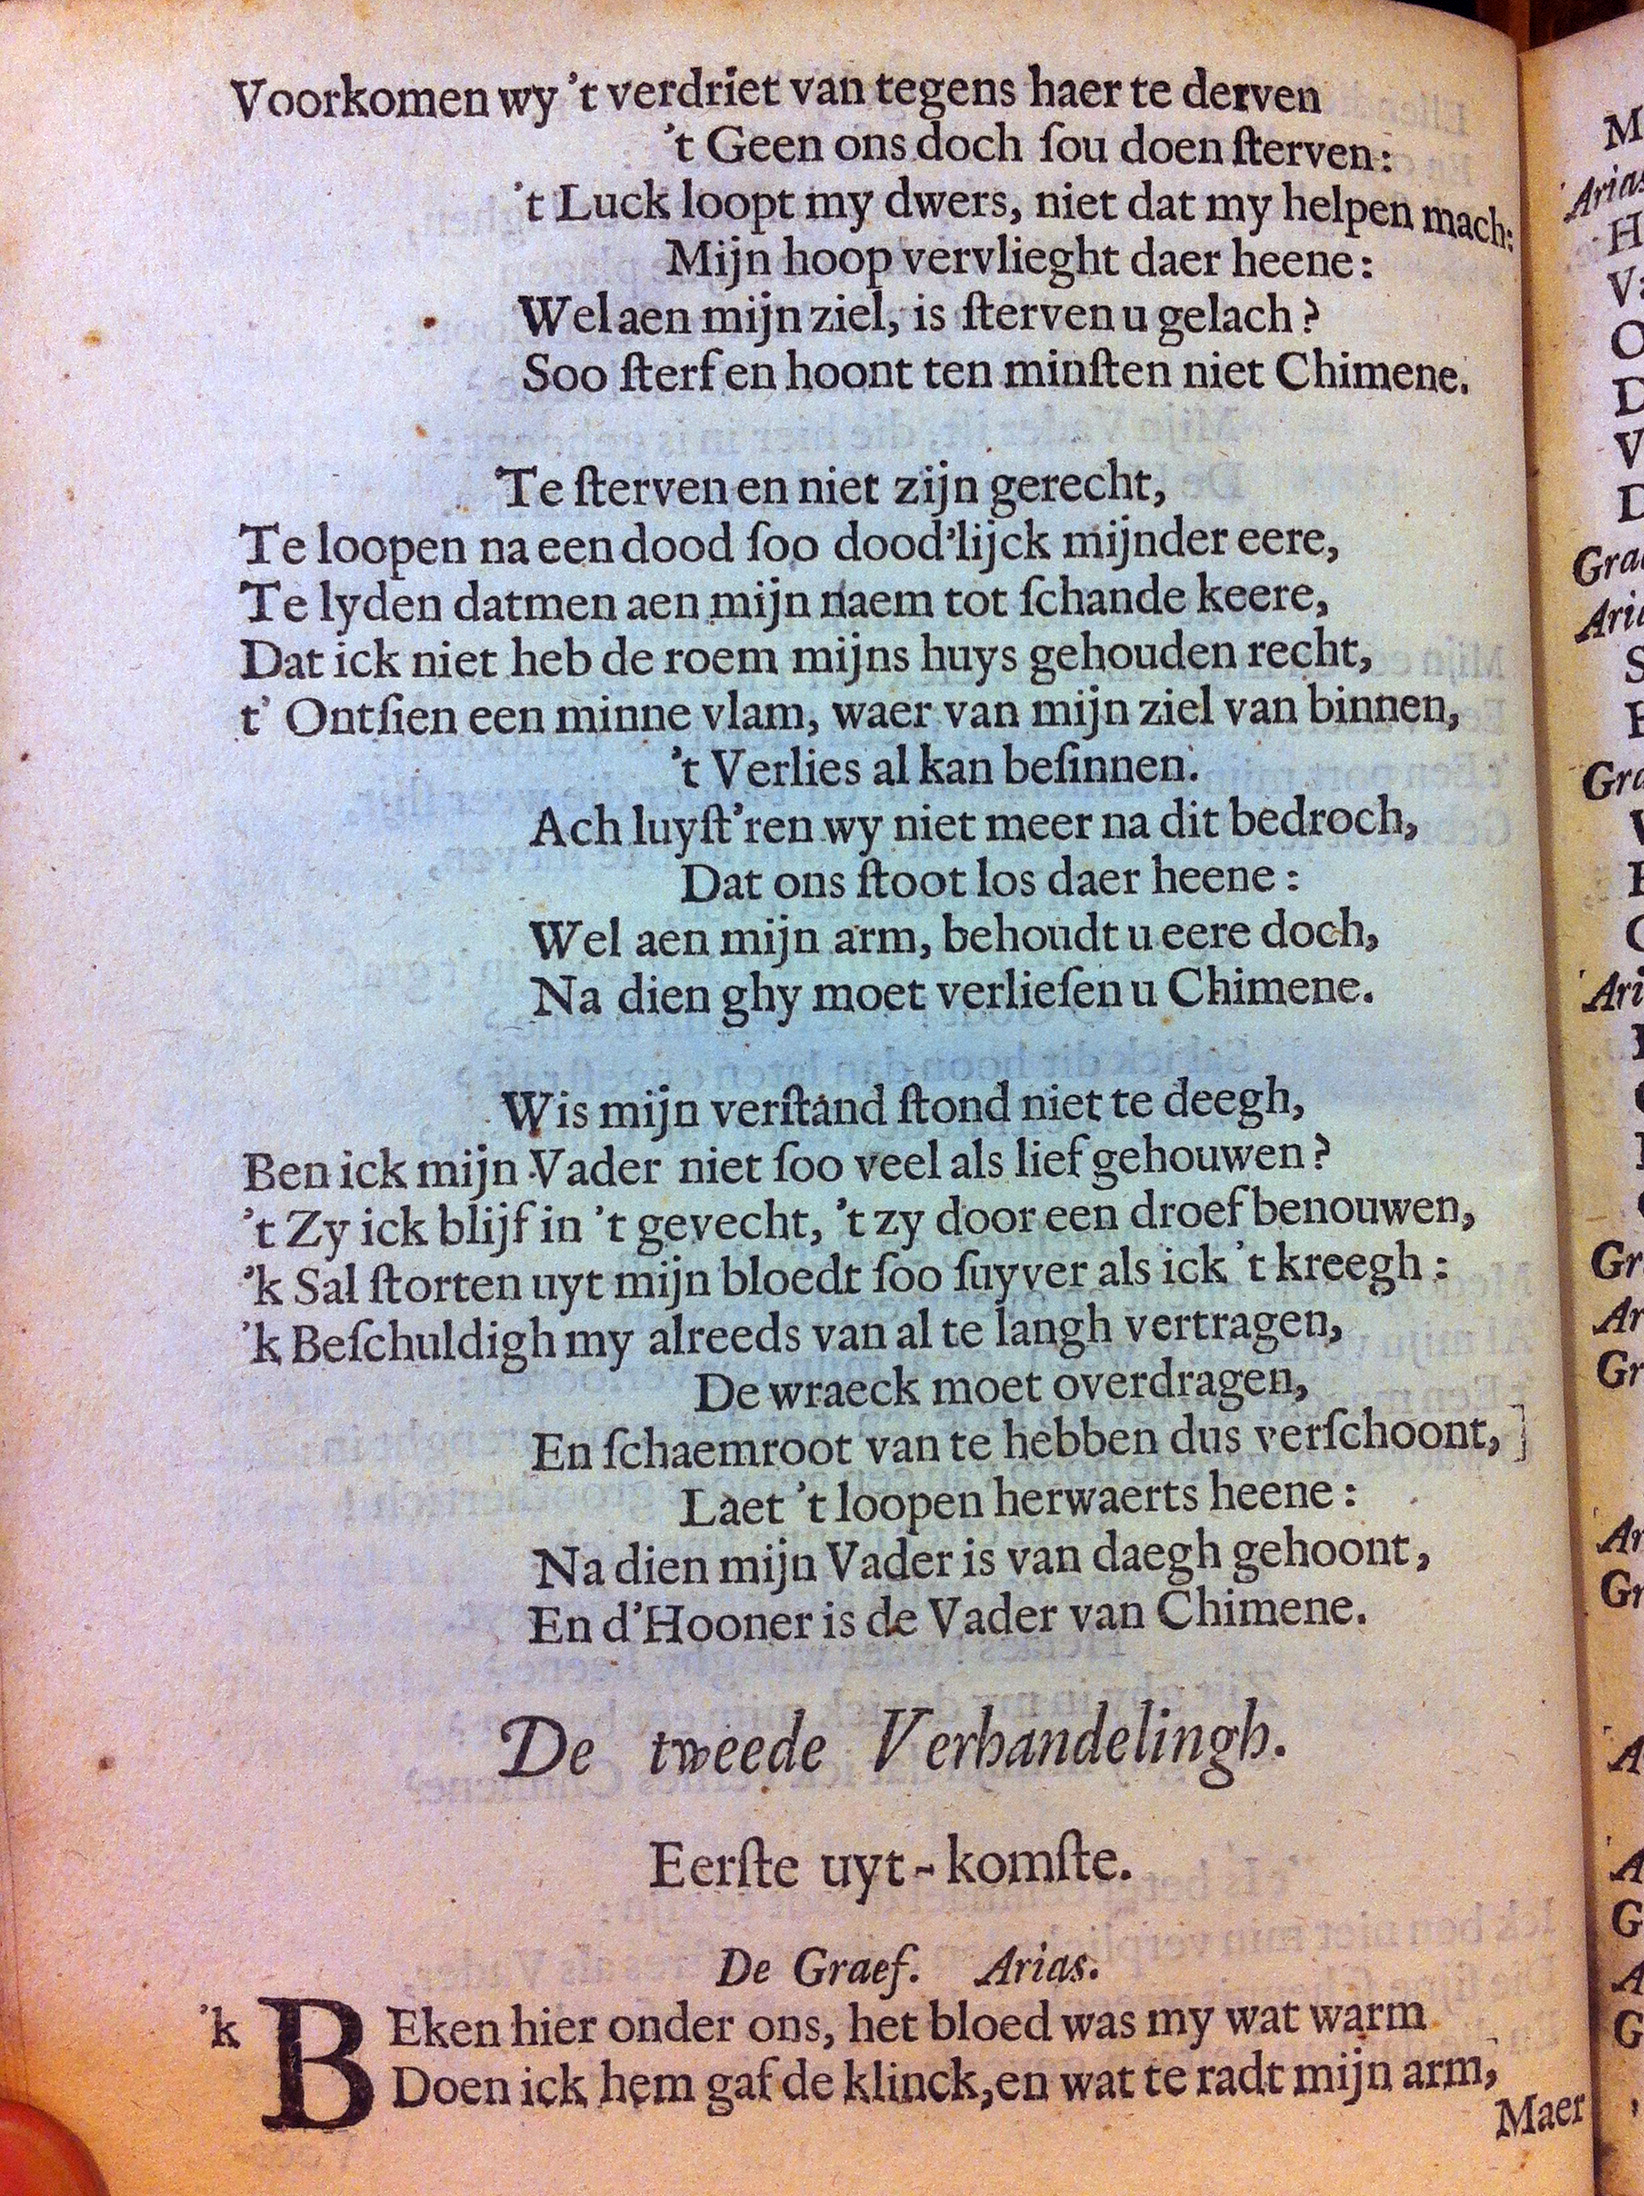 Voorkomen wy 't verdriet van tegens haer te derven
't Geen ons doch ſou doen ſterven:
't Luck loopt my dwers, niet dat my helpen mach:
Mijn hoop vervlieght daer heene:
Wel aen mijn ziel, is ſterven u gelach?
Soo ſterf en hoont ten minſten niet Chimene.
Te ſterven en niet zijn gerecht,
Te loopen na een dood ſoo dood'lijck mijnder eere,
Te lyden datmen aen mijn naem tot ſchande keere,
Dat ick niet heb de roem mijns huys gehouden recht,
t' Ontſien een minne vlam, waer van mijn ziel van binnen,
't Verlies al kan beſinnen.
Ach luyſt'ren wy niet meer na dit bedroch,
Dat ons ſtoot los daer heene:
Wel aen mijn arm, behoudt u eere doch,
Na dien ghy moet verlieſen u Chimene.
Wis mijn verſtand ſtond niet te deegh,
Ben ick mijn Vader niet ſoo veel als lief gehouwen?
't Zy ick blijf in 't gevecht, 't zy door een droef benouwen,
'k Sal ſtorten uyt mijn bloedt ſoo ſuyver als ick 't kreegh:
'k Beſchuldigh my alreeds van al te langh vertragen,
De wraeck moet overdragen,
En ſchaemroot van te hebben dus verſchoont,]
Laet 't loopen herwaerts heene:
Na dien mijn Vader is van daegh gehoont,
En d'Hooner is de Vader van Chimene.
De tweede Verhandelingh.
Eerſte uyt-komſte.
De Graef. Arias.
'k BEken hier onder ons, het bloed was my wat warm
Doen ick hem gaf de klinck, en wat te radt mijn arm,
Maer